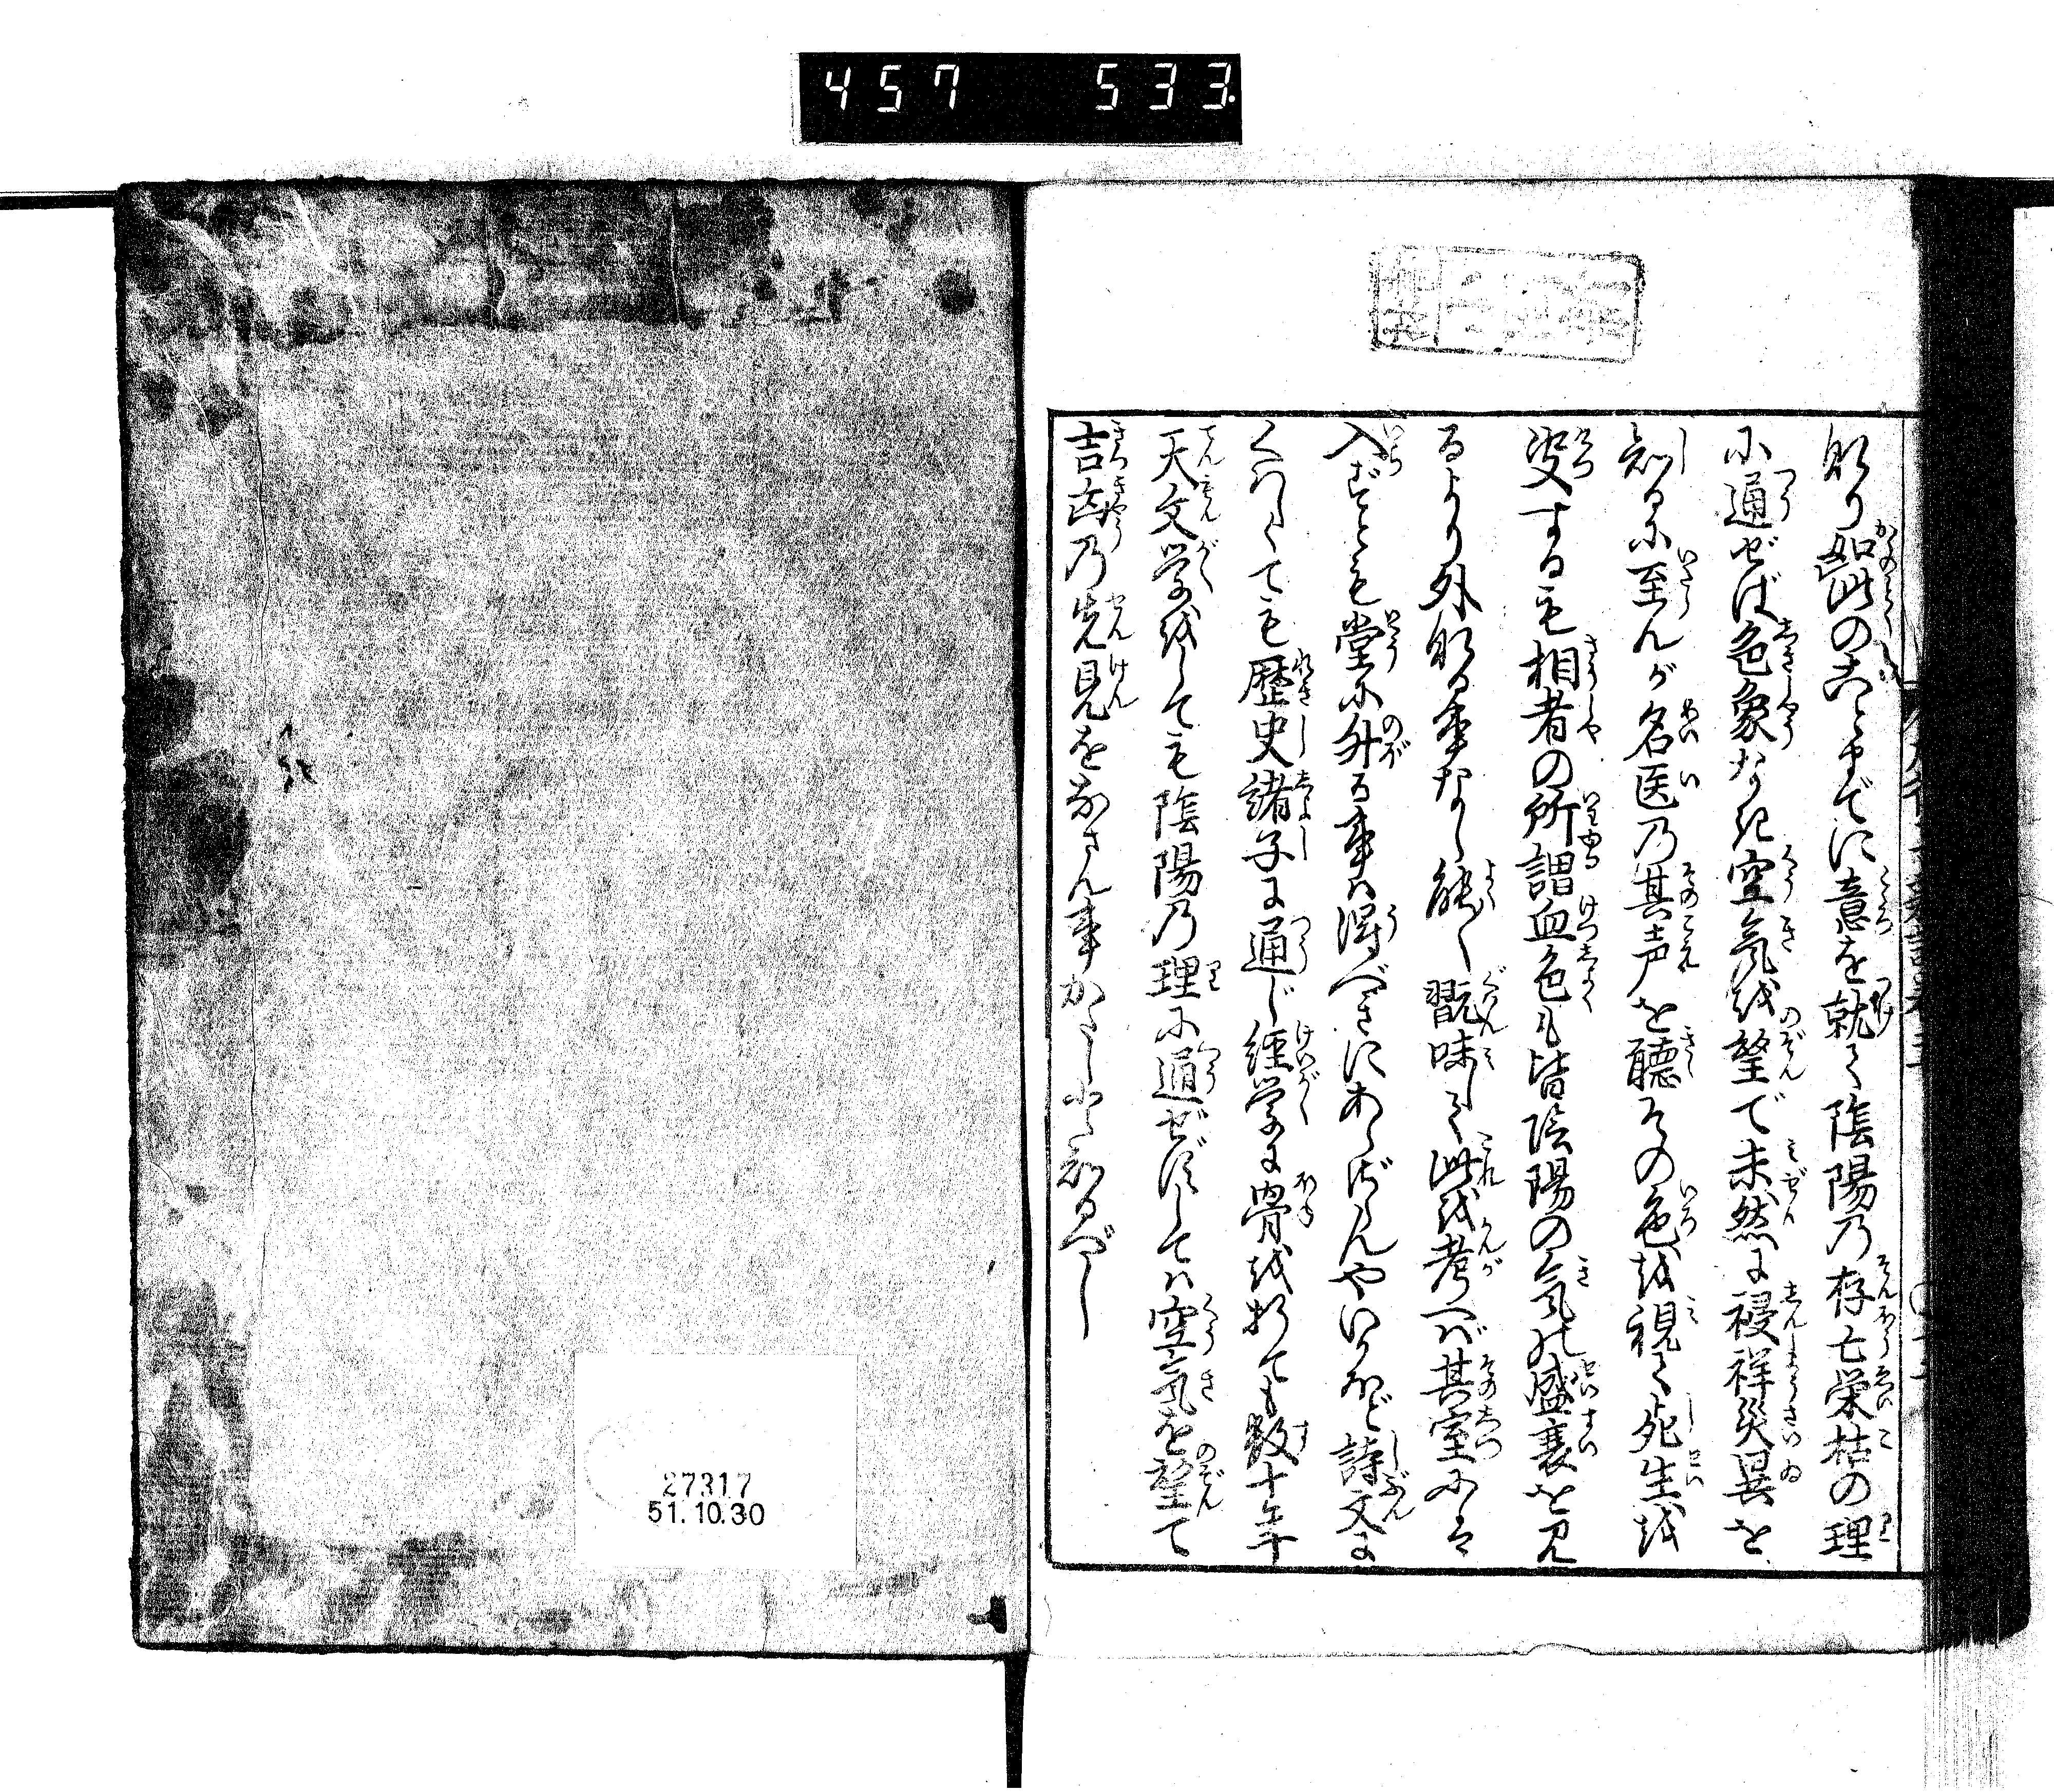 457 533
助り如此のことまでに意を就て陰陽乃存亡栄枯の理
に通ぜば色象なき空気を望で未然に祲祥災異を
知るに至んが名医乃其声を聴その色を視て死生を
するも相者の所謂血色も皆陰陽の気の盛衰を見
るより外なる事なし能く翫味して此を考へば其室には
入ずとも堂に升る事は得べきにあらずんやいかほど詩文に
くはしくても歴史諸子に通じ経学に骨を折ても数十年
天文学をしても陰陽乃理に通ぜずしては空気を望て
吉凶乃先見をなさん事かたしと知るべし
27317
51.10.30